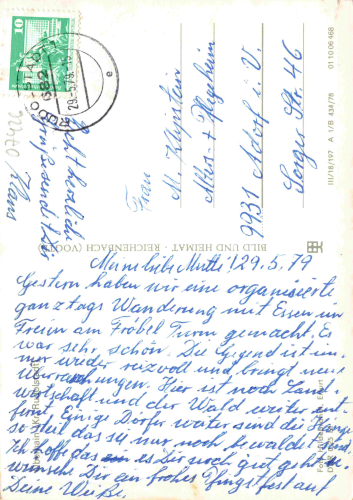 10
682
29.-5.79
01 10 06 468
III/18/197 A 1/B 434/78
BILD UND HEIMAT · REICHENBACH (VOGTL)
Frau
M. 
Alters- + Pflegeheim
9931 Adorf i. V.
Sorger Str. 46
07426
Recht herzlich
Hans
Meine liebe Mutti! 29.5.79
Gestern haben wir eine organisierte
ganztags Wanderung mit Essen im
Freien am Fröbel Turm gemacht. Es
war sehr schön. Die Gegend ist im-
mer wieder reizvoll und bringt neue
Überraschungen. Hier ist noch Land-
wirtschaft und der Wald weiter ent-
fernt. Einige Dörfer weiter sind die Hänge
so steil das sie nur noch bewaldet sind.
Ich hoffe das es Dir noch gut geht
wünsche Dir ein frohes Pfingstfest auf